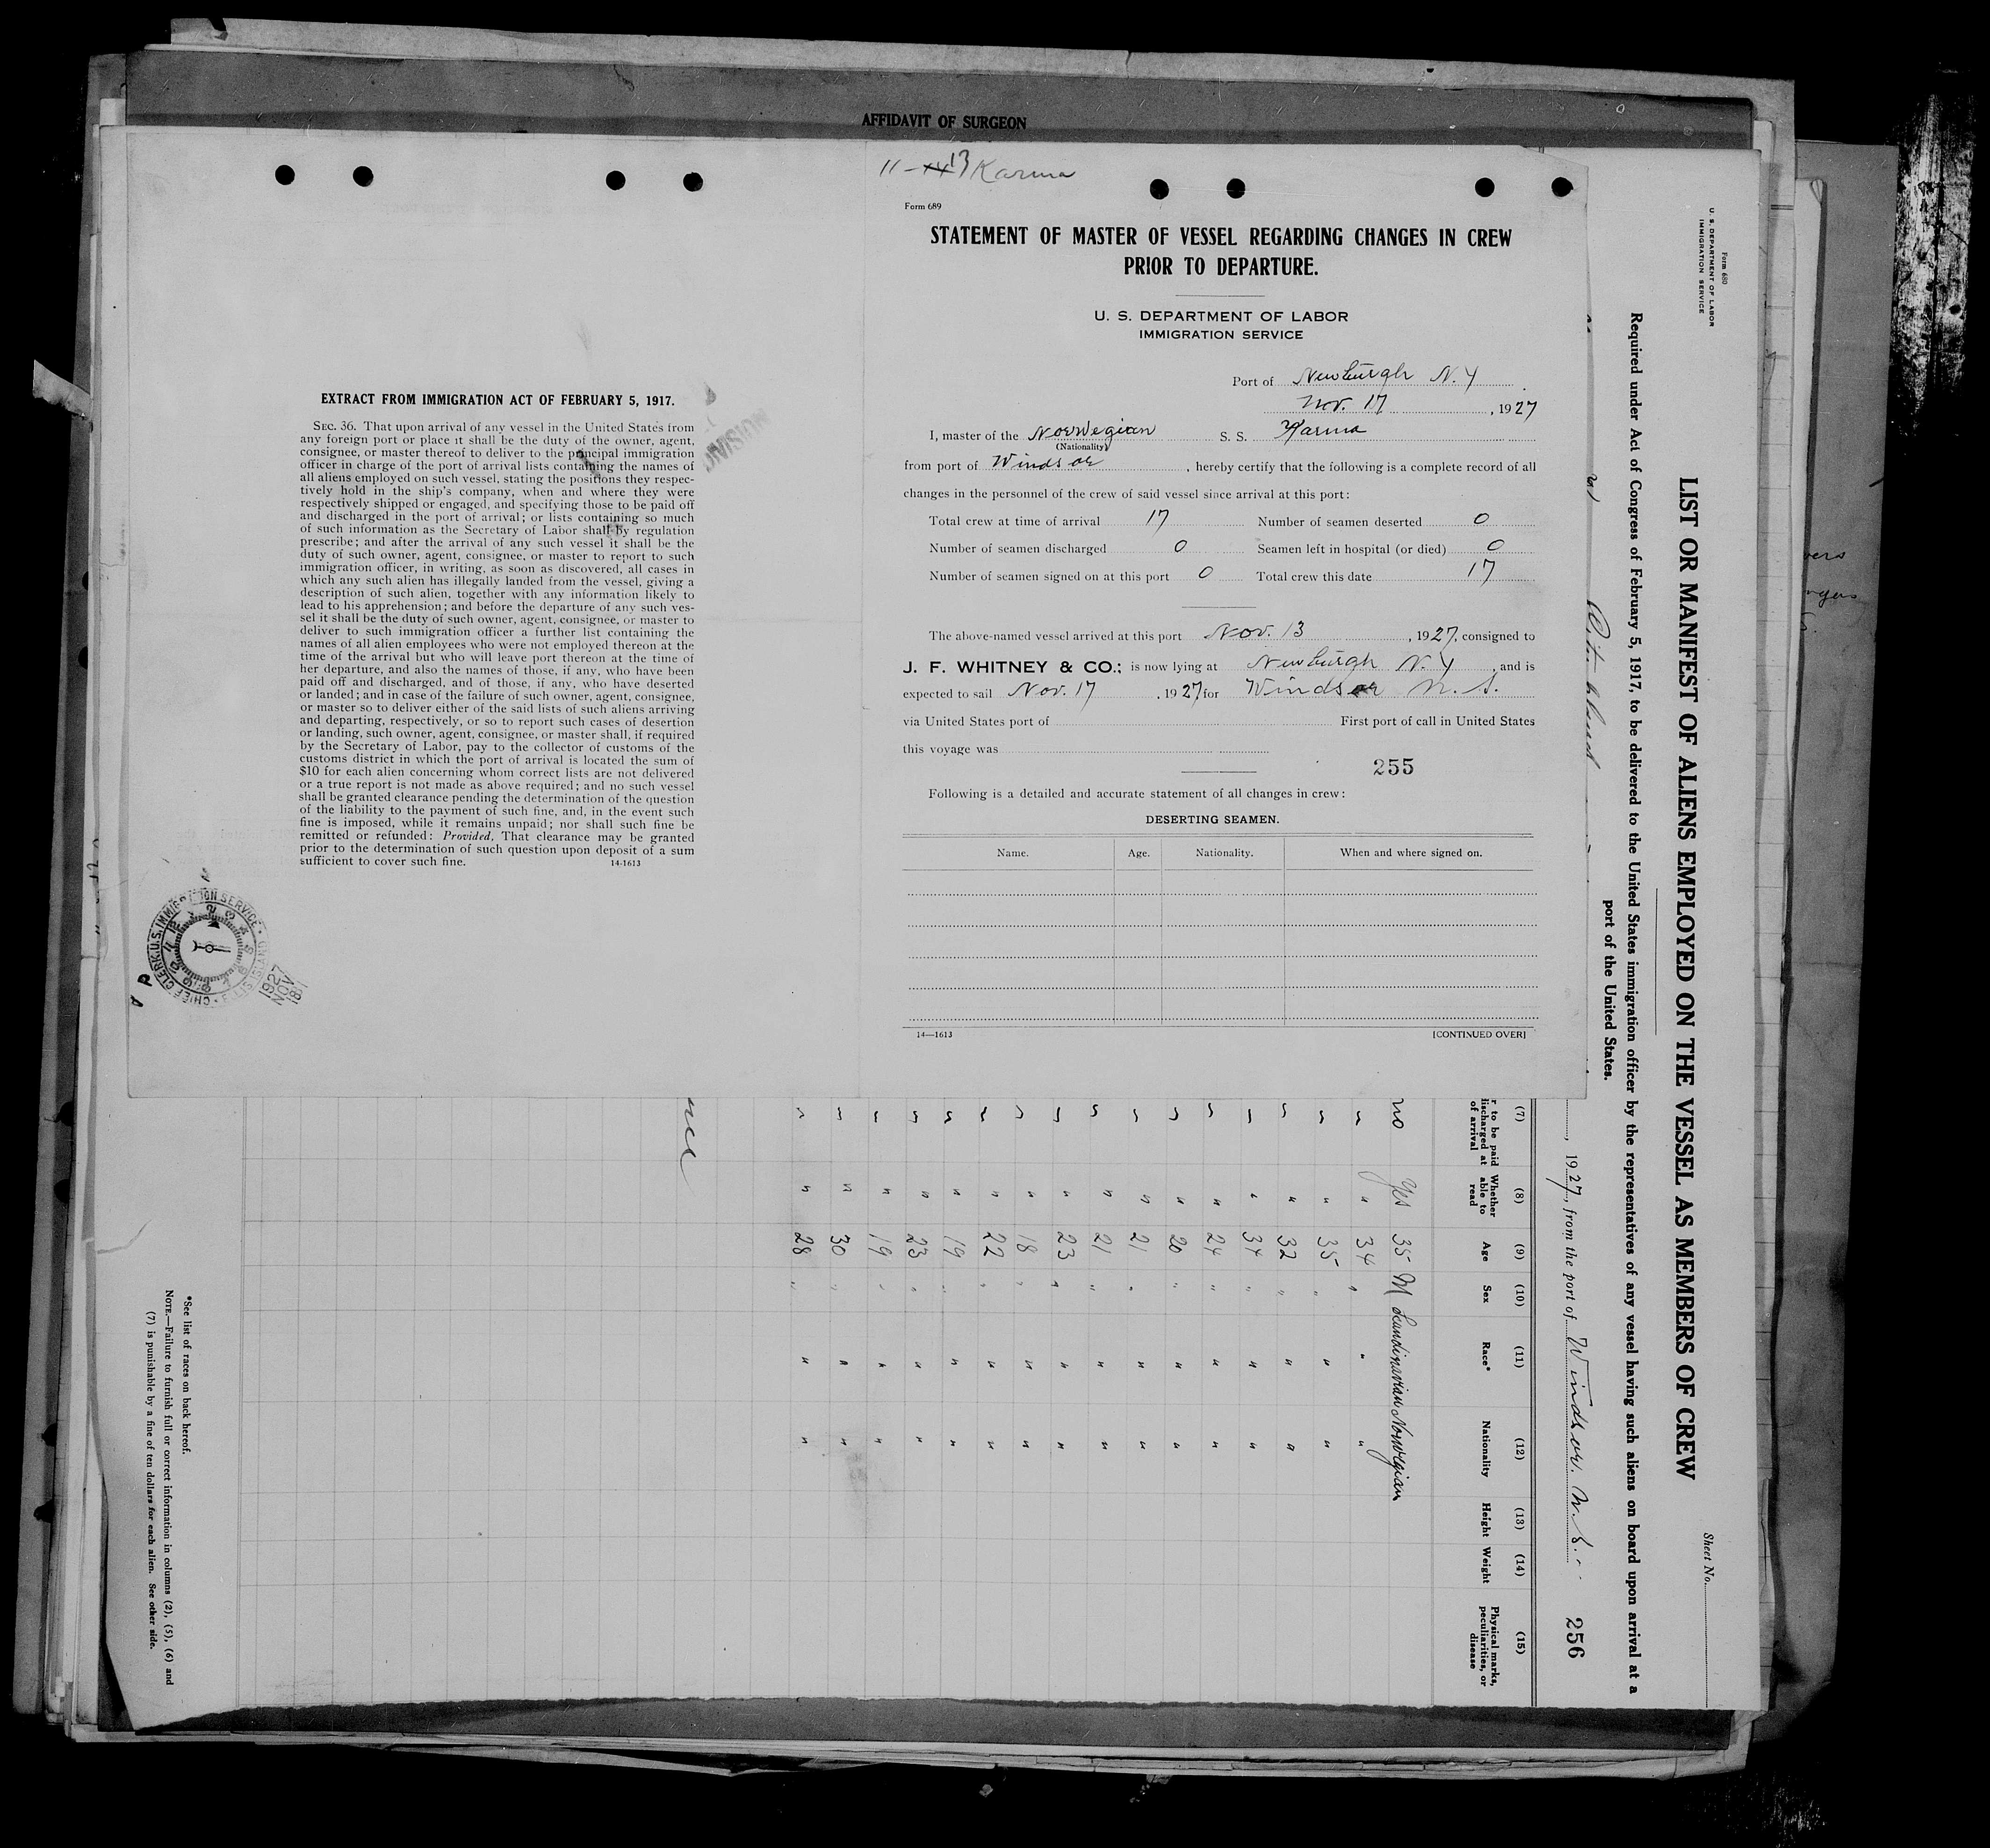 AFFIDAVIT OF SURGEON
11-14 13 Karma
Form 689
STATEMENT OF MASTER OF VESSEL REGARDING CHANGES IN CREW
PRIOR TO DEPARTURE.
U. S. DEPARTMENT OF LABOR
IMMIGRATION SERVICE
Port of Newburgh N.Y
Nov. 17, 1927
I, master of the Norwegian S. S. Karma
(Nationality)
from port of Windsor, hereby certify that the following is a complete record of all
changes in the personnel of the crew of said vessel since arrival at this port:
Total crew at time of arrival 17 Number of seamen deserted 0
Number of seamen discharged 0 Seamen left in hospital (or died) 0
Number of seamen signed on at this port 0 Total crew this date 17
The above-named vessel arrived at this port Nov. 13, 1927, consigned to
J. F. WHITNEY & CO.; is now lying at Newburgh N.Y, and is
expected to sail Nov. 17, 1927 for Windsor N.S.
via United States port of First port of call in United States
this voyage was
255
Following is a detailed and accurate statement of all changes in crew:
DESERTING SEAMEN.
Name. Age. Nationality. When and where signed on.
14—1613 [CONTINUED OVER]
EXTRACT FROM IMMIGRATION ACT OF FEBRUARY 5, 1917.
SEC. 36. That upon arrival of any vessel in the United States from
any foreign port or place it shall be the duty of the owner, agent,
consignee, or master thereof to deliver to the principal immigration
officer in charge of the port of arrival lists containing the names of
all aliens employed on such vessel, stating the positions they respec-
tively hold in the ship's company, when and where they were
respectively shipped or engaged, and specifying those to be paid off
and discharged in the port of arrival; or lists containing so much
of such information as the Secretary of Labor shall by regulation
prescribe; and after the arrival of any such vessel it shall be the
duty of such owner, agent, consignee, or master to report to such
immigration officer, in writing, as soon as discovered, all cases in
which any such alien has illegally landed from the vessel, giving a
description of such alien, together with any information likely to
lead to his apprehension; and before the departure of any such ves-
sel it shall be the duty of such owner, agent, consignee, or master to
deliver to such immigration officer a further list containing the
names of all alien employees who were not employed thereon at the
time of the arrival but who will leave port thereon at the time of
her departure, and also the names of those, if any, who have been
paid off and discharged, and of those, if any, who have deserted
or landed; and in case of the failure of such owner, agent, consignee,
or master so to deliver either of the said lists of such aliens arriving
and departing, respectively, or so to report such cases of desertion
or landing, such owner, agent, consignee, or master shall, if required
by the Secretary of Labor, pay to the collector of customs of the
customs district in which the port of arrival is located the sum of
$10 for each alien concerning whom correct lists are not delivered
or a true report is not made as above required; and no such vessel
shall be granted clearance pending the determination of the question
of the liability to the payment of such fine, and, in the event such
fine is imposed, while it remains unpaid; nor shall such fine be
remitted or refunded: Provided, That clearance may be granted
prior to the determination of such question upon deposit of a sum
sufficient to cover such fine. 14-1613
DIVISION
CHIEF CLERK, U.S. IMMIGRATION SERVICE · ELLIS ISLAND
1927
NOV
18
Form 680
U. S. DEPARTMENT OF LABOR
IMMIGRATION SERVICE
Sheet No.
LIST OR MANIFEST OF ALIENS EMPLOYED ON THE VESSEL AS MEMBERS OF CREW
Required under Act of Congress of February 5, 1917, to be delivered to the United States immigration officer by the representatives of any vessel having such aliens on board upon arrival at a
port of the United States.
, 1927, from the port of Windsor. N.S.
256
(7) (8) (9) (10) (11) (12) (13) (14) (15)
r to be paid
discharged at
of arrival
Whether
able to
read
Age
Sex
Race*
Nationality
Height
Weight
Physical marks,
peculiarities, or
disease
no Yes 35 M Scandinavian Norwegian
" " 34 " " "
" " 35 " " "
" " 32 " " "
" " 34 " " "
" " 24 " " "
" " 20 " " "
" " 21 " " "
" " 21 " " "
" " 23 " " "
" " 18 " " "
" " 22 " " "
" " 19 " " "
" " 23 " " "
" " 19 " " "
" " 30 " " "
" " 28 " " "
*See list of races on back hereof.
NOTE.—Failure to furnish full or correct information in columns (2), (5), (6) and
(7) is punishable by a fine of ten dollars for each alien. See other side.